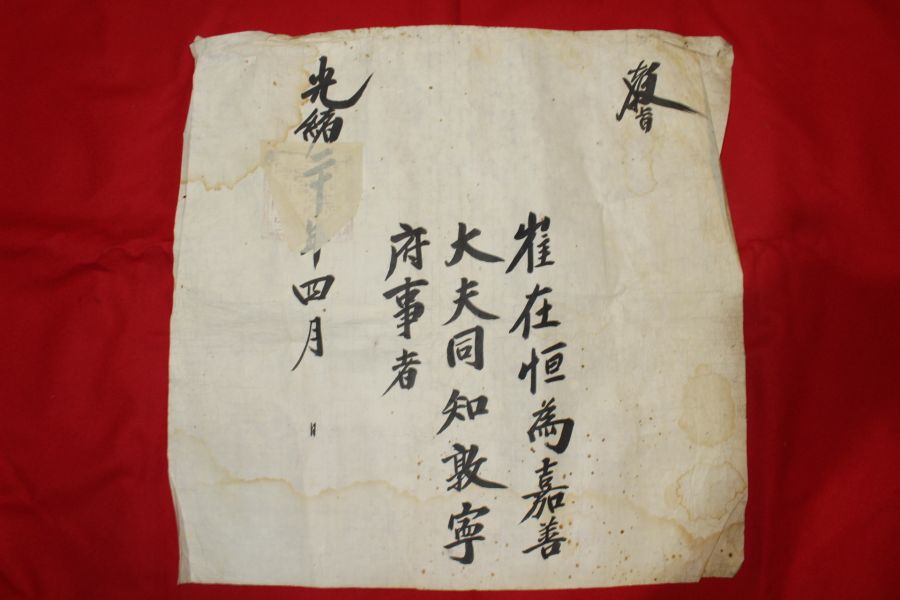 敎旨
崔在恒為嘉善
大夫同知敦寧
府事者
光緒二十年四月 日